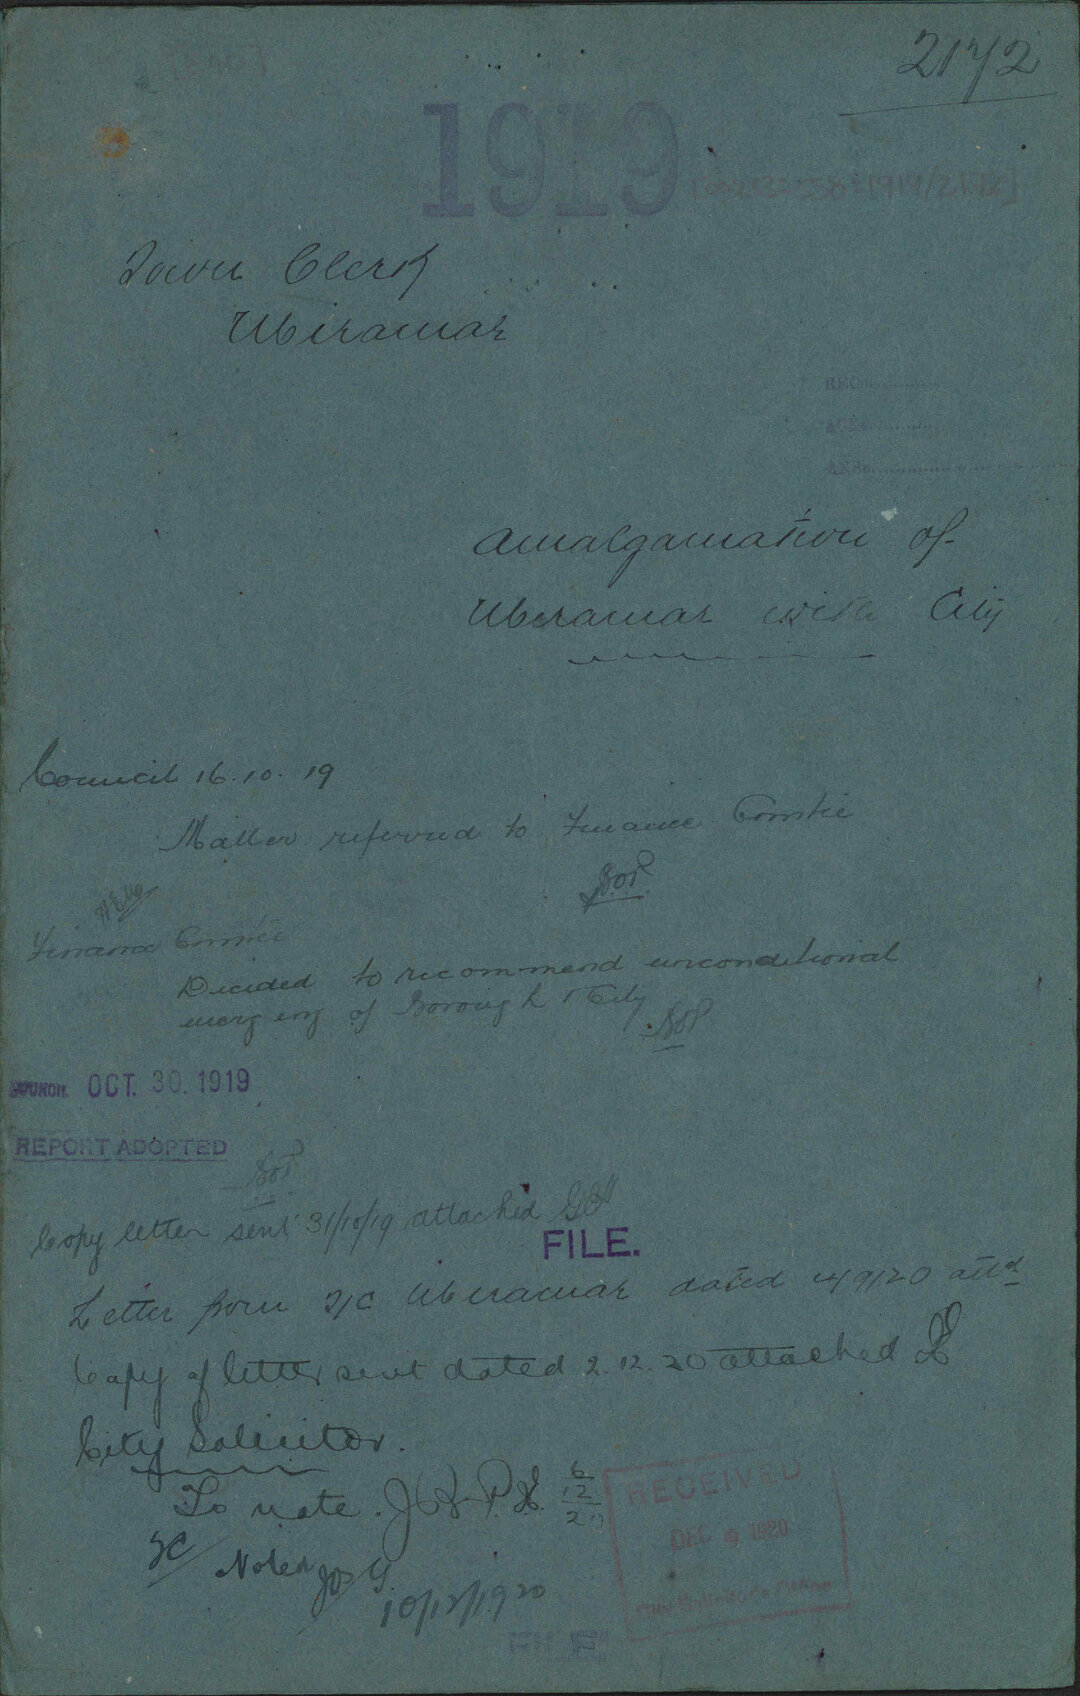 2172
1919
Town Clerk
Miramar
Amalgamation of
Miramar with City
Council 16.10.19
Matter referred to Finance Comtee
Finance Comtee
Decided to recommend unconditional
merging of Borough & City
COUNCIL OCT. 30. 1919
REPORT ADOPTED
Copy letter sent 31/10/19 attached
FILE.
Letter from T/C Miramar dated 4/9/20 attd
Copy of letter sent dated 2.12.20 attached
City Solicitor.
To note. 6/12/20
RECEIVED
DEC 9 1920
City Solicitor's Office
T/C Noted
10/12/1920
FILE.